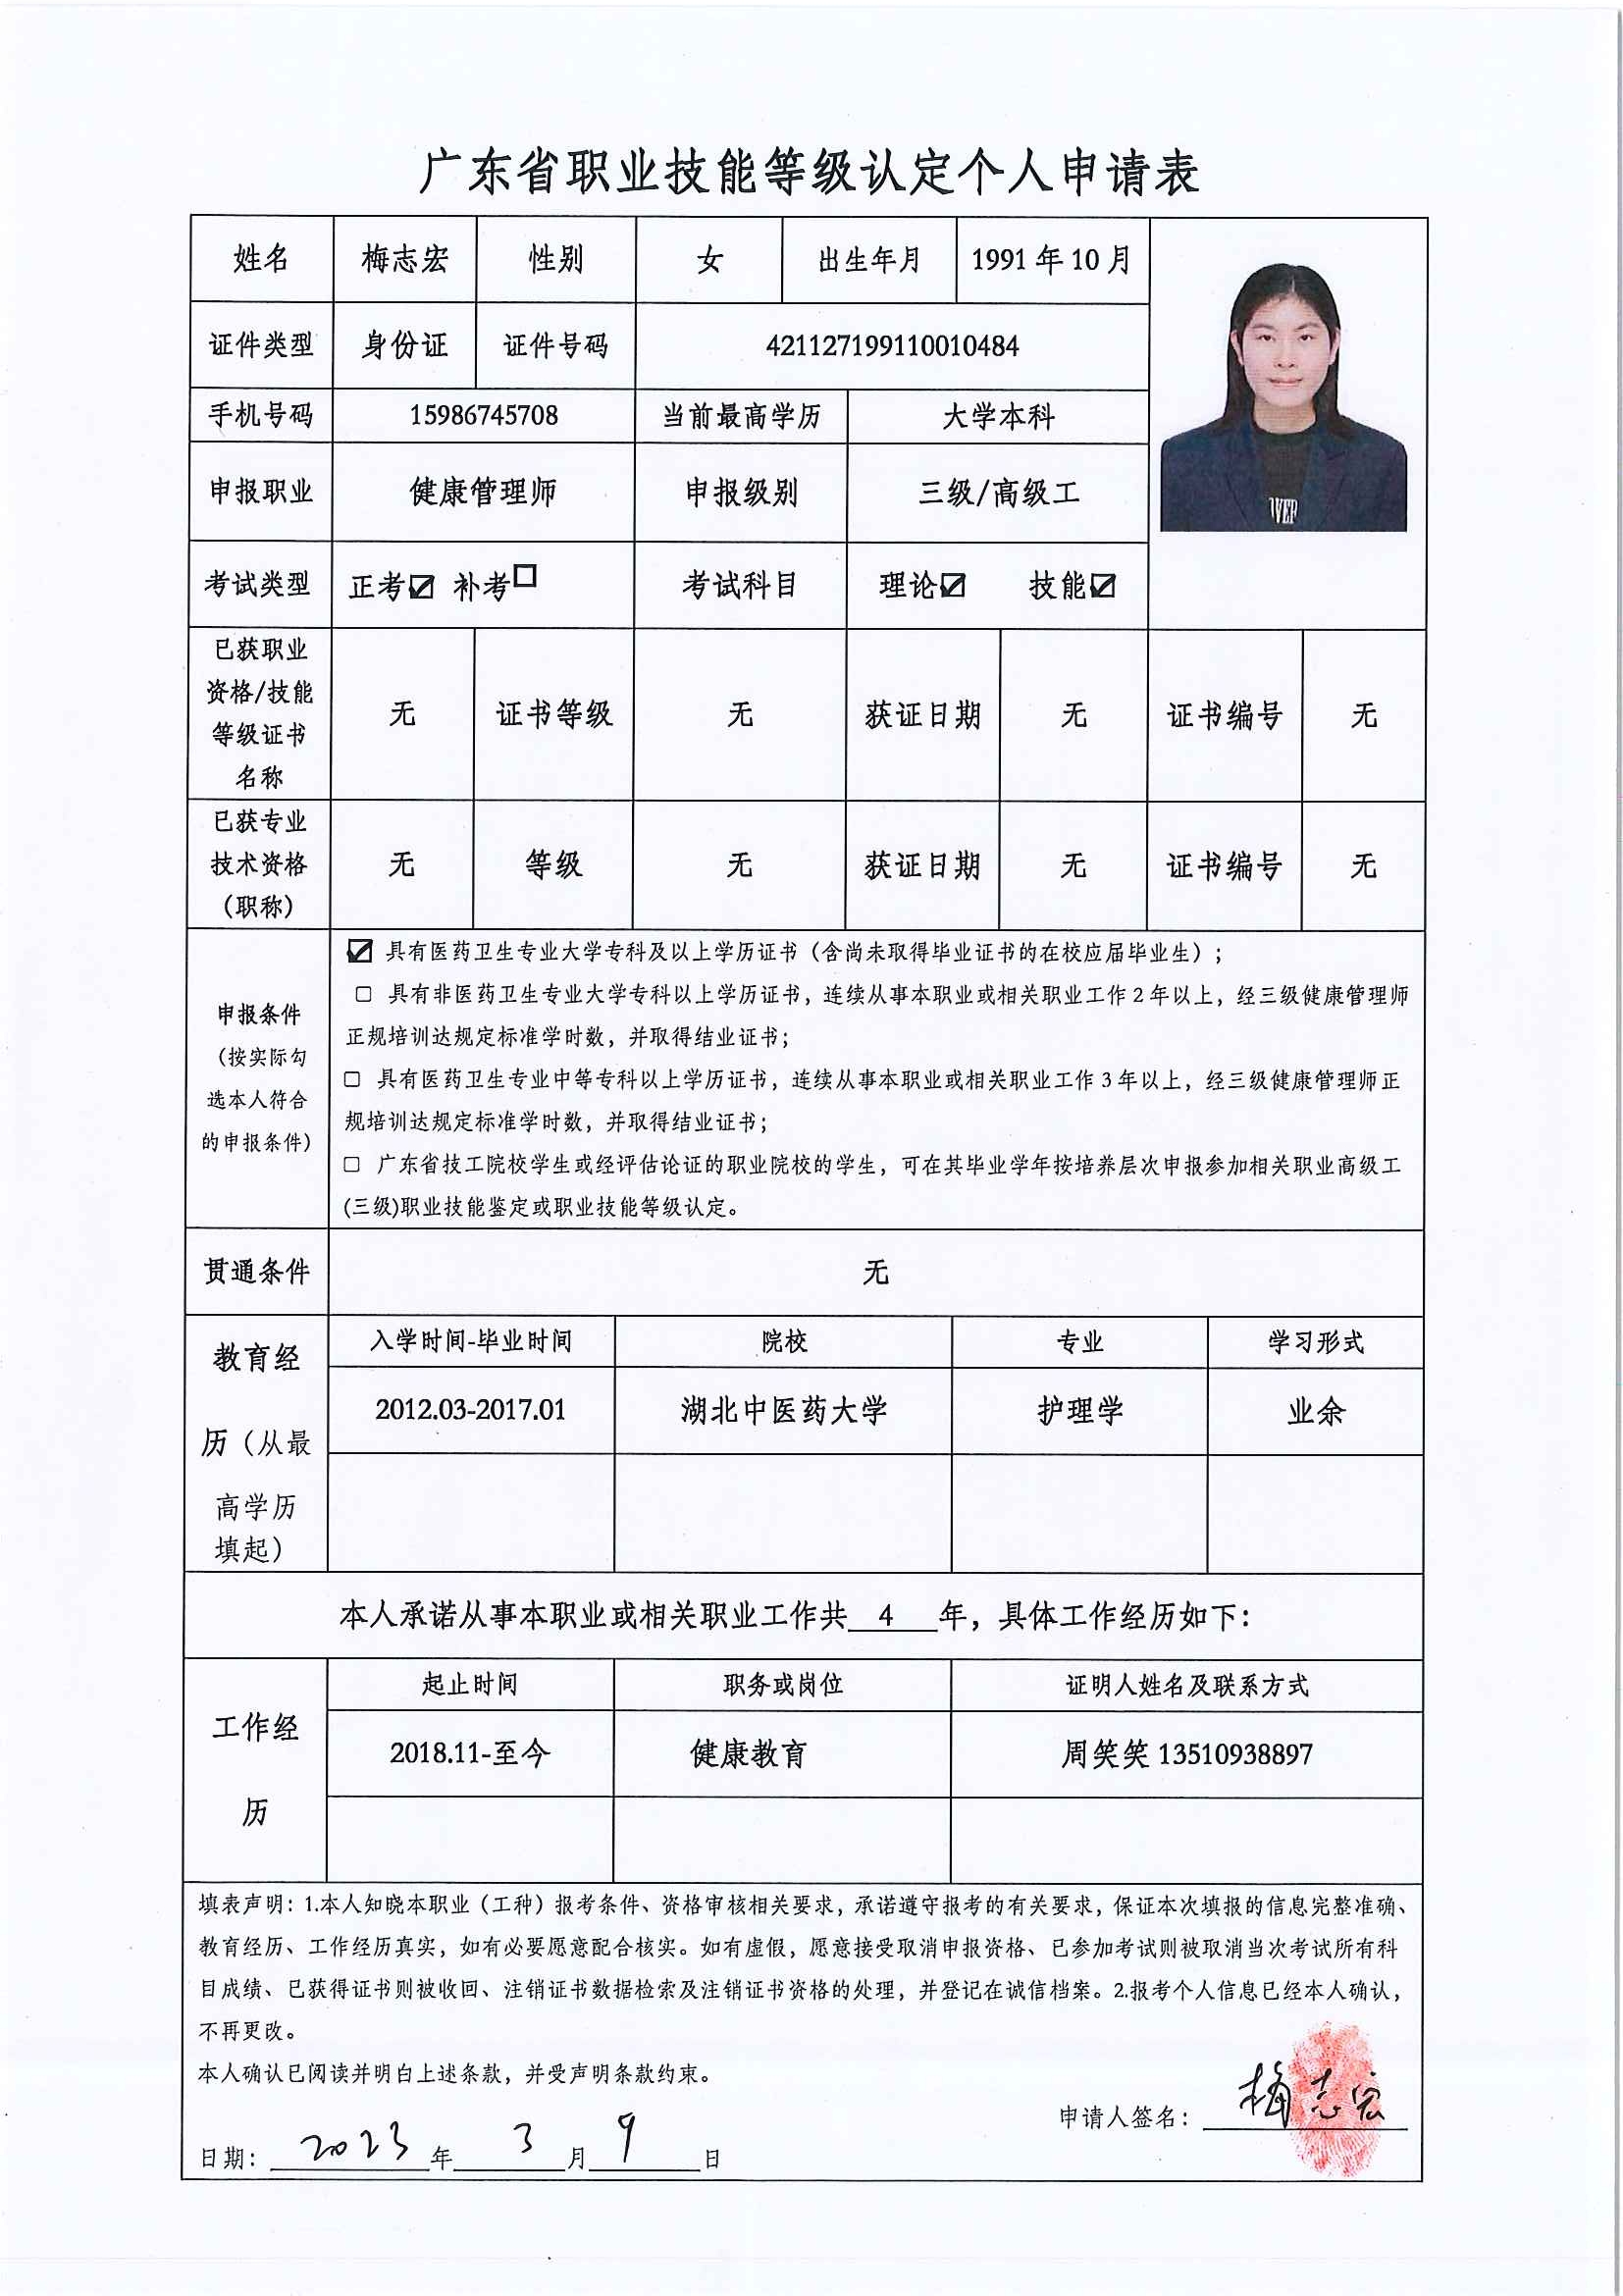 广东省职业技能等级认定个人申请表
姓名 梅志宏 性别 女 出生年月 1991年10月
证件类型 身份证 证件号码 421127199110010484
手机号码 15986745708 当前最高学历 大学本科
申报职业 健康管理师 申报级别 三级/高级工
WER
考试类型 正考☑ 补考☐ 考试科目 理论☑ 技能☑
已获职业
资格/技能
等级证书
名称
无 证书等级 无 获证日期 无 证书编号 无
已获专业
技术资格
（职称）
无 等级 无 获证日期 无 证书编号 无
申报条件
（按实际勾
选本人符合
的申报条件）
☑ 具有医药卫生专业大学专科及以上学历证书（含尚未取得毕业证书的在校应届毕业生）；
☐ 具有非医药卫生专业大学专科以上学历证书，连续从事本职业或相关职业工作2年以上，经三级健康管理师
正规培训达规定标准学时数，并取得结业证书；
☐ 具有医药卫生专业中等专科以上学历证书，连续从事本职业或相关职业工作3年以上，经三级健康管理师正
规培训达规定标准学时数，并取得结业证书；
☐ 广东省技工院校学生或经评估论证的职业院校的学生，可在其毕业学年按培养层次申报参加相关职业高级工
(三级)职业技能鉴定或职业技能等级认定。
贯通条件 无
教育经
历（从最
高学历
填起）
入学时间-毕业时间 院校 专业 学习形式
2012.03-2017.01 湖北中医药大学 护理学 业余
本人承诺从事本职业或相关职业工作共 4 年，具体工作经历如下：
工作经
历
起止时间 职务或岗位 证明人姓名及联系方式
2018.11-至今 健康教育 周笑笑 13510938897
填表声明：1.本人知晓本职业（工种）报考条件、资格审核相关要求，承诺遵守报考的有关要求，保证本次填报的信息完整准确、
教育经历、工作经历真实，如有必要愿意配合核实。如有虚假，愿意接受取消申报资格、已参加考试则被取消当次考试所有科
目成绩、已获得证书则被收回、注销证书数据检索及注销证书资格的处理，并登记在诚信档案。2.报考个人信息已经本人确认，
不再更改。
本人确认已阅读并明白上述条款，并受声明条款约束。
申请人签名： 梅志宏
日期： 2023 年 3 月 9 日